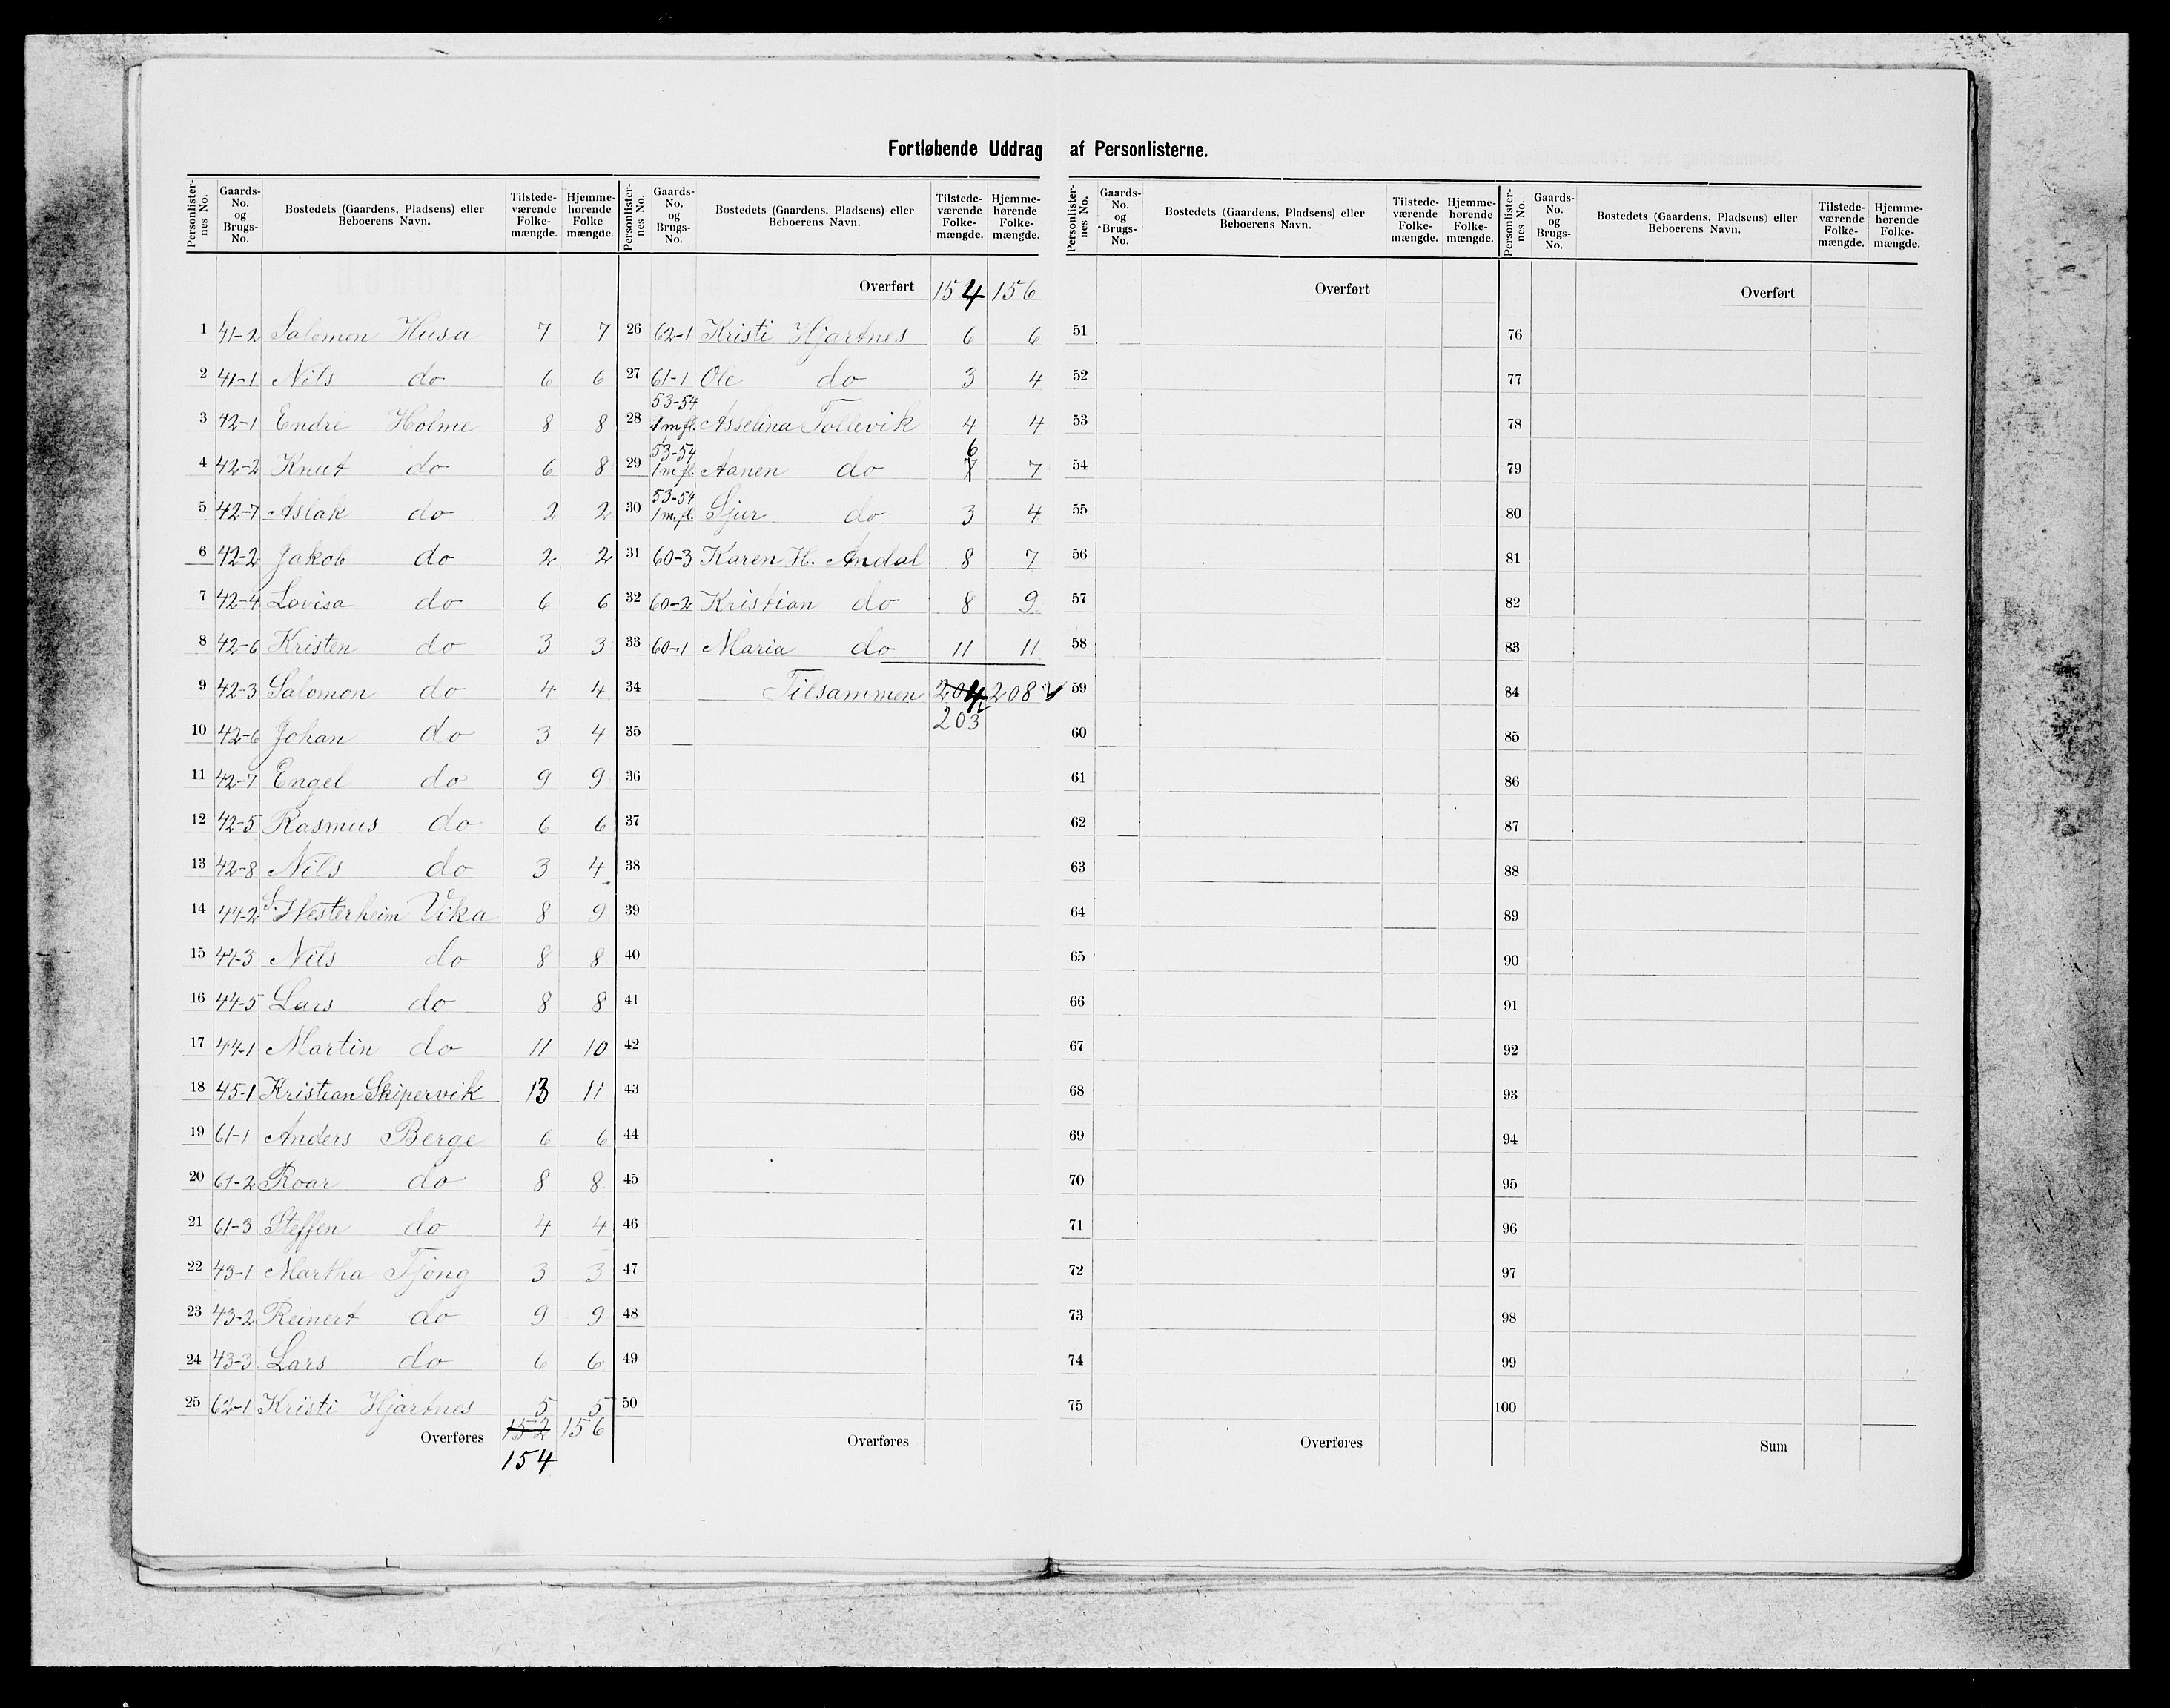 Fortløbende Uddrag af Personlisterne.
Personlisternes No. Gaards-No. og Brugs-No. Bostedets (Gaardens, Pladsens) eller Beboerens Navn. Tilstedeværende Folkemængde. Hjemmehørende Folke mængde.
1 41-2 Salomon Husa 7 7
2 41-1 Nils do 6 6
3 42-1 Endre Holme 8 8
4 42-2 Knut do 6 8
5 42-7 Aslak do 2 2
6 42-2 Jakob do 2 2
7 42-4 Lovisa do 6 6
8 42-6 Kristen do 3 3
9 42-3 Salomon do 4 4
10 42-6 Johan do 3 4
11 42-7 Engel do 9 9
12 42-5 Rasmus do 6 6
13 42-8 Nils do 3 4
14 44-2 S. Westerheim Vika 8 9
15 44-3 Nils do 8 8
16 44-5 Lars do 8 8
17 44-1 Martin do 11 10
18 45-1 Kristian Skipervik 13 11
19 61-1 Anders Berge 6 6
20 61-2 Roar do 8 8
21 61-3 Steffen do 4 4
22 43-1 Martha Tjong 3 3
23 43-2 Reinert do 9 9
24 43-3 Lars do 6 6
25 62-1 Kristi Hjartnes 5 5
Overføres 152 156
154
Personlisternes No. Gaards-No. og Brugs-No. Bostedets (Gaardens, Pladsens) eller Beboerens Navn. Tilstedeværende Folkemængde. Hjemmehørende Folkemængde.
Overført 154 156
26 62-1 Kristi Hjartnes 6 6
27 61-1 Ole do 3 4
53-54
28 1 m.fl. Asselina Tollevik 4 4
53-54 6
29 1 m.fl. Aanen do 7 7
53-54
30 1 m.fl. Sjur do 3 4
31 60-3 Karen H. Andal 8 7
32 60-2 Kristian do 8 9
33 60-1 Maria do 11 11
34 Tilsammen 204 208
203
35
36
37
38
39
40
41
42
43
44
45
46
47
48
49
50
Overføres
Personlisternes No. Gaards-No. og Brugs-No. Bostedets (Gaardens, Pladsens) eller Beboerens Navn. Tilstedeværende Folkemængde. Hjemmehørende Folkemængde.
Overført
51
52
53
54
55
56
57
58
59
60
61
62
63
64
65
66
67
68
69
70
71
72
73
74
75
Overføres
Personlisternes No. Gaards-No. og Brugs-No. Bostedets (Gaardens, Pladsens) eller Beboerens Navn. Tilstedeværende Folkemængde. Hjemmehørende Folkemængde.
Overført
76
77
78
79
80
81
82
83
84
85
86
87
88
89
90
91
92
93
94
95
96
97
98
99
100
Sum